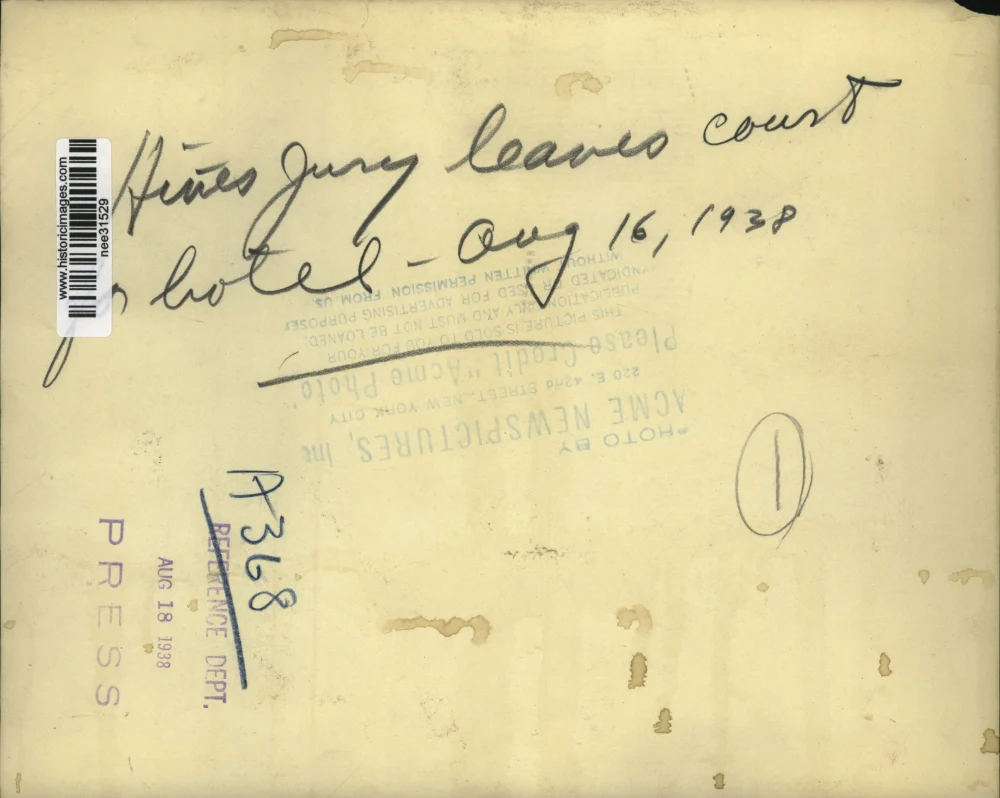 Hines Jury leaves court
for hotel - Aug 16, 1938
www.historicimages.com
nee31529
PHOTO BY
ACME NEWSPICTURES, Inc
220 E. 42nd STREET, NEW YORK CITY
Please Credit "Acme Photo"
THIS PICTURE IS SOLD TO YOU FOR YOUR
PUBLICATION ONLY AND MUST NOT BE LOANED,
SYNDICATED OR USED FOR ADVERTISING PURPOSES
WITHOUT WRITTEN PERMISSION FROM US
1
A368
REFERENCE DEPT.
AUG 18 1938
PRESS